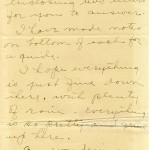 enclosing two letters
for you to answer.
I have made notes
on bottom of each for
a guide.
I hope everything
is just fine down
there, with plenty
of rain. everything
is
up here.